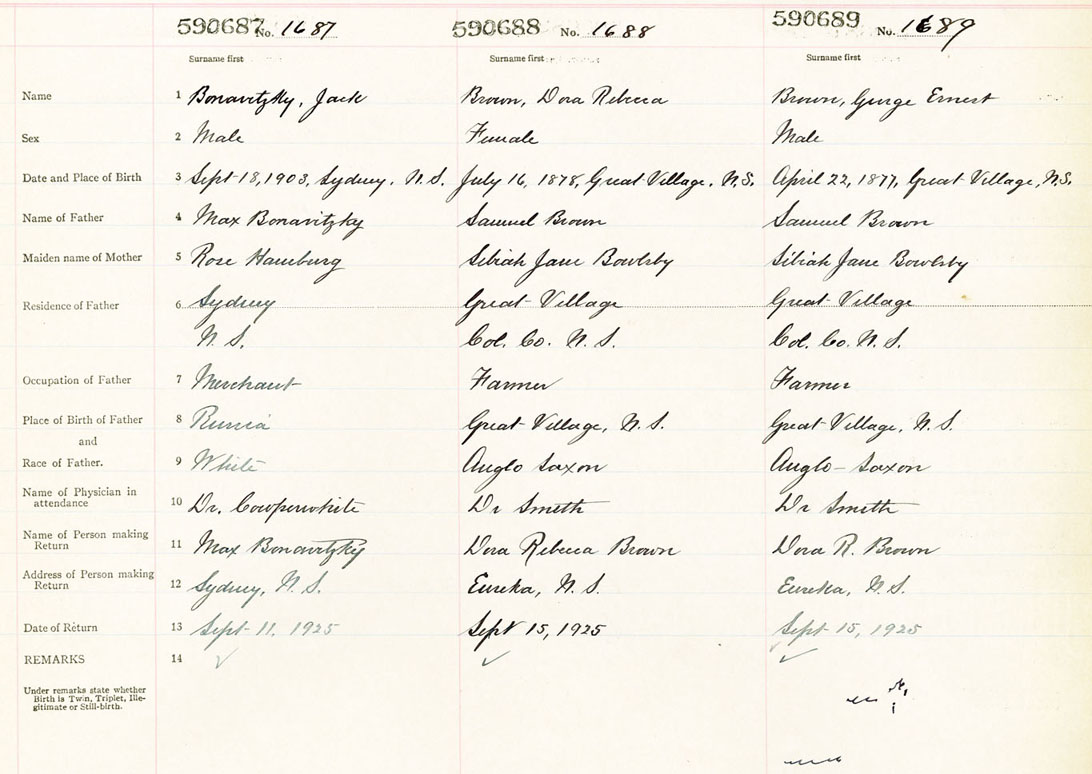 590687 No. 1687 590688 No. 1688 590689 No. 1689
Surname first Surname first Surname first
Name 1 Bonavitzky, Jack Brown, Dora Rebecca Brown, George Ernest
Sex 2 Male Female Male
Date and Place of Birth 3 Sept 18, 1903, Sydney, N.S. July 16, 1878, Great Village, N.S. April 22, 1877, Great Village, N.S.
Name of Father 4 Max Bonavitzky Samuel Brown Samuel Brown
Maiden name of Mother 5 Rose Hamburg Sibiah Jane Bowlsby Sibiah Jane Bowlsby
Residence of Father 6 Sydney Great Village Great Village
N.S. Col. Co. N.S. Col. Co. N.S.
Occupation of Father 7 Merchant Farmer Farmer
Place of Birth of Father 8 Russia Great Village, N.S. Great Village, N.S.
and
Race of Father. 9 White Anglo Saxon Anglo-Saxon
Name of Physician in
attendance 10 Dr. Cowperwhite Dr Smith Dr Smith
Name of Person making
Return 11 Max Bonavitzky Dora Rebecca Brown Dora R. Brown
Address of Person making
Return 12 Sydney, N.S. Eureka, N.S. Eureka, N.S.
Date of Return 13 Sept 11. 1925 Sept 15, 1925 Sept 15, 1925
REMARKS 14
Under remarks state whether
Birth is Twin, Triplet, Ille-
gitimate or Still-birth.